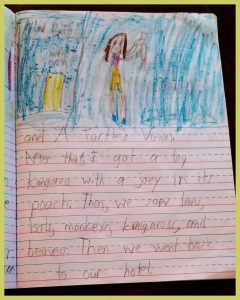 and A Turtle's View.
After that, I got a toy
kangaroo with a joey in its
pouch. Then, we saw lions,
bats, monkeys, kangaroos, and
Then we went back
to our hotel.